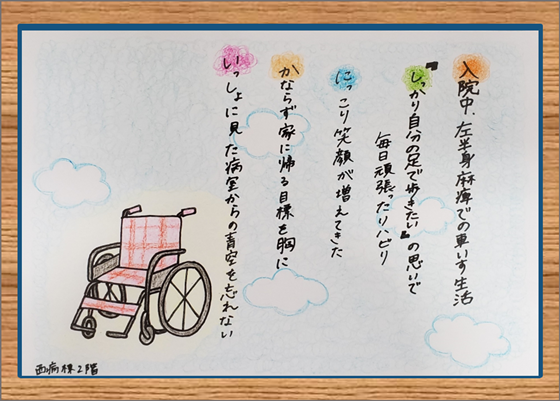 入院中、左半身麻痺での車いす生活
『しっかり自分の足で歩きたい』の思いで
毎日頑張ったリハビリ
にっこり笑顔が増えてきた
かならず家に帰る目標を胸に
いっしょに見た病室からの青空を忘れない
西病棟2階